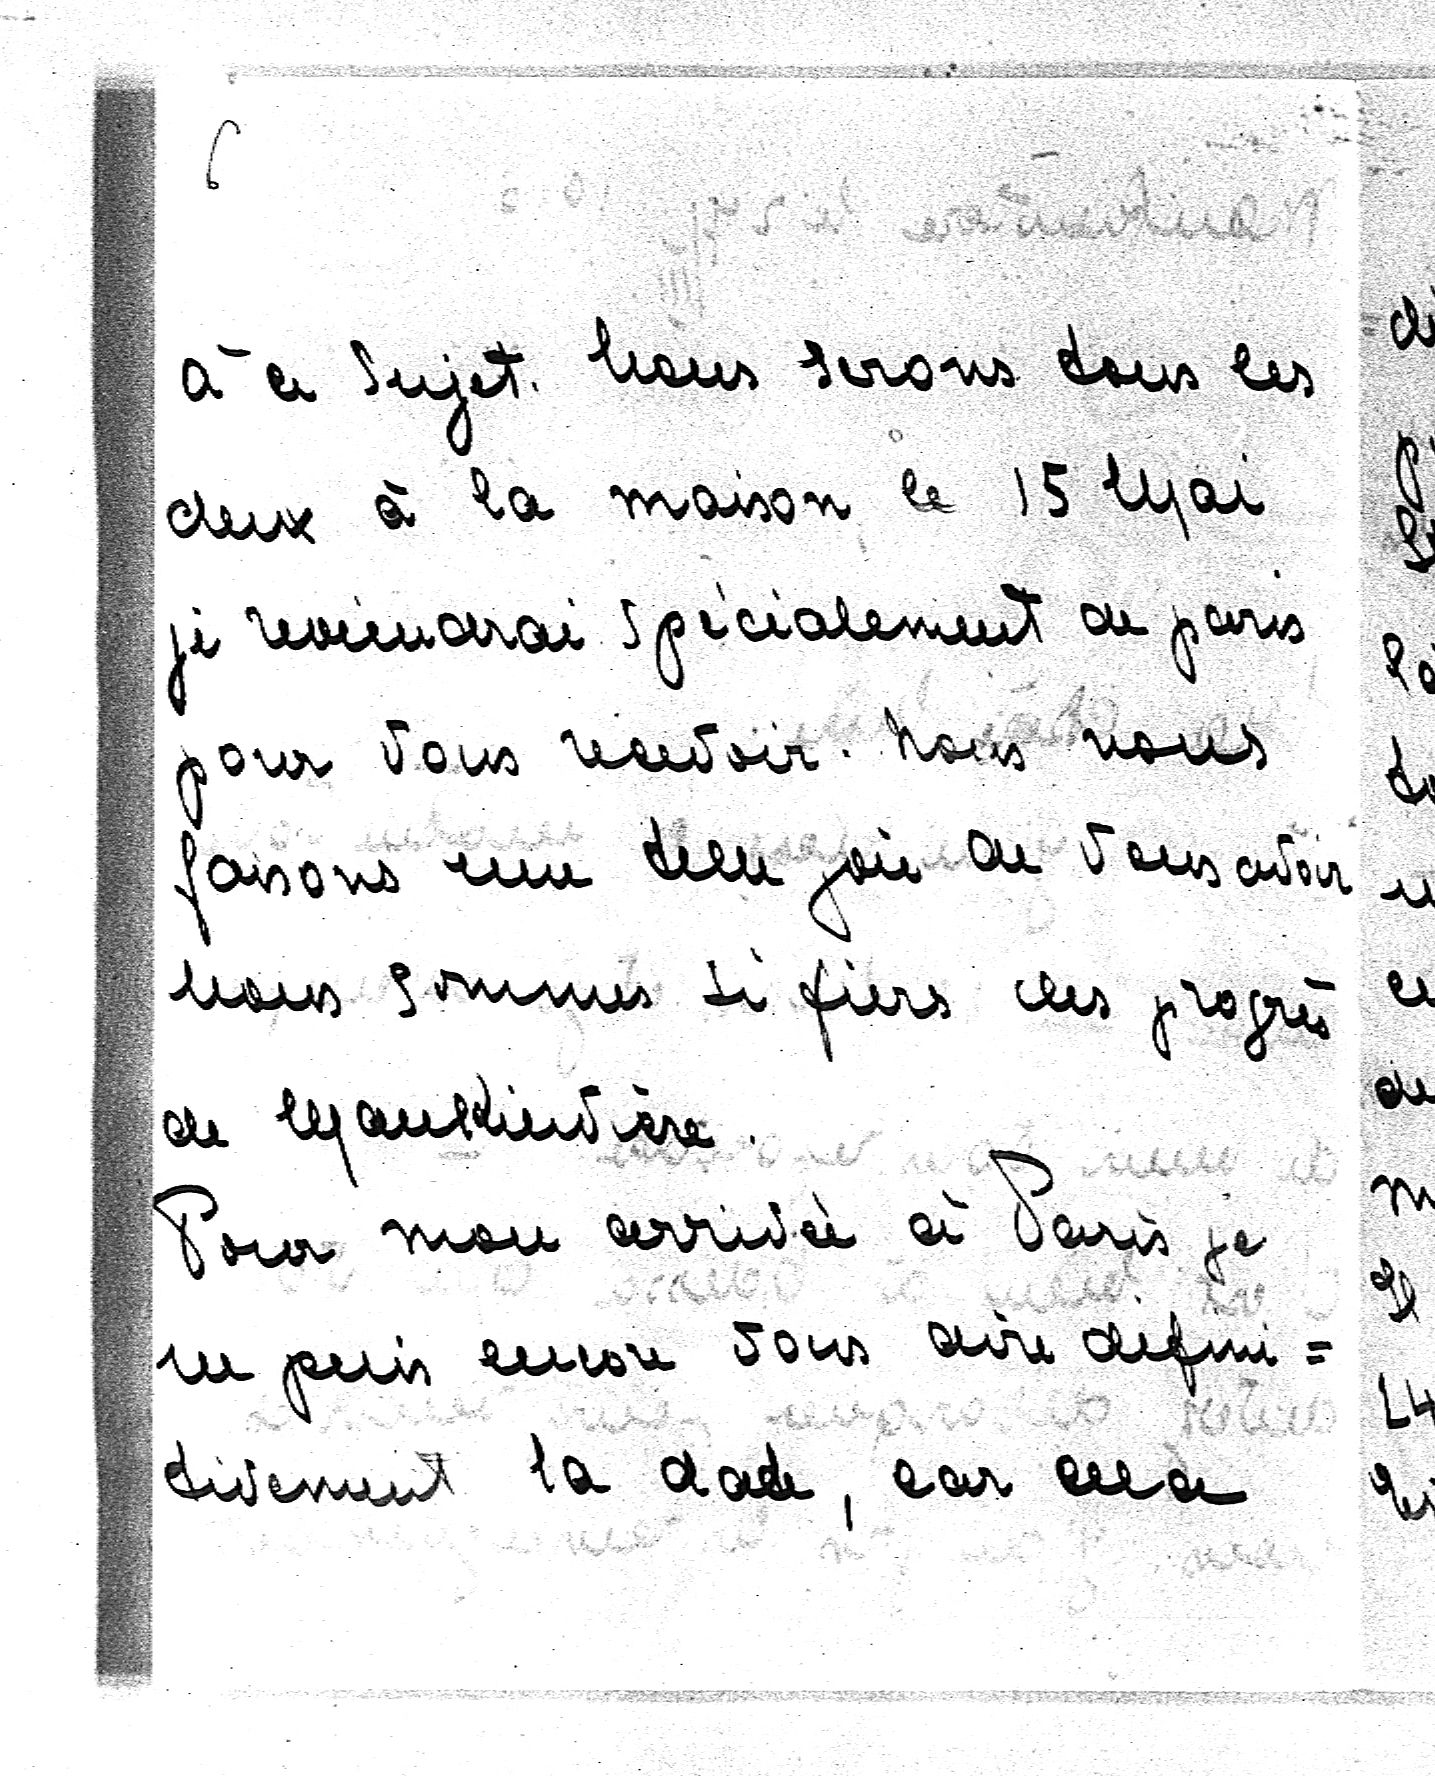 6
à ce sujet. Nous serons tous les
deux à la maison, le 15 Mai
je reviendrai spécialement de paris
pour vous recevoir. Nous nous
faisons une telle joie de vous avoir
nous sommes si fiers des progrès
de
Pour mon arrivée à Paris je
ne puis encore vous dire défini=
tivement la date, car cela